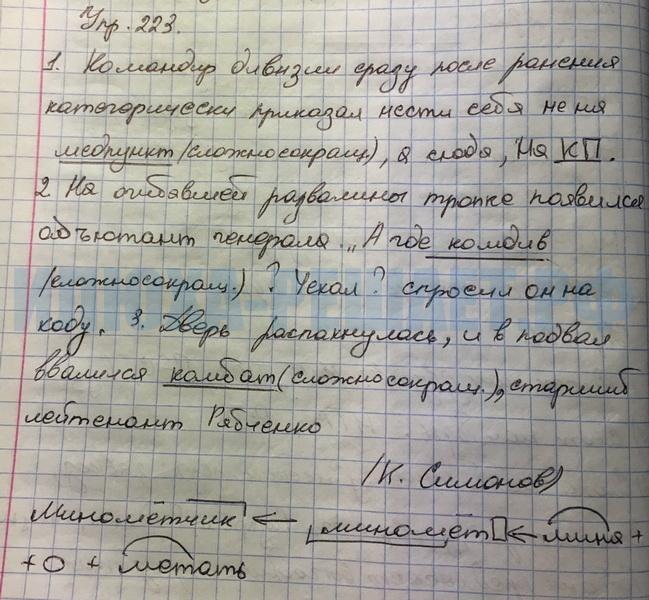 Упр. 223.
1. Командир дивизии сразу после ранения
категорически приказал нести себя не на
медпункт (сложносокращ.), а сюда, на КП.
2 На огибавшей развалины тропке появился
адъютант генерала. „А где комдив
(сложносокращ.) ? Уехал ? спросил он на
ходу. 3. Дверь распахнулась, и в подвал
ввалился комбат (сложносокращ.), старший
лейтенант Рябченко
(К. Симонов)
Миномётчик ← миномёт ← мина +
+ о + метать